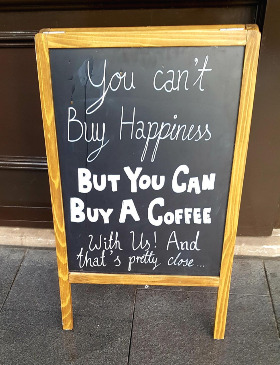 You can't
Buy Happiness
BUT YOU CAN
BUY A COFFEE
With Us! And
that's pretty close...